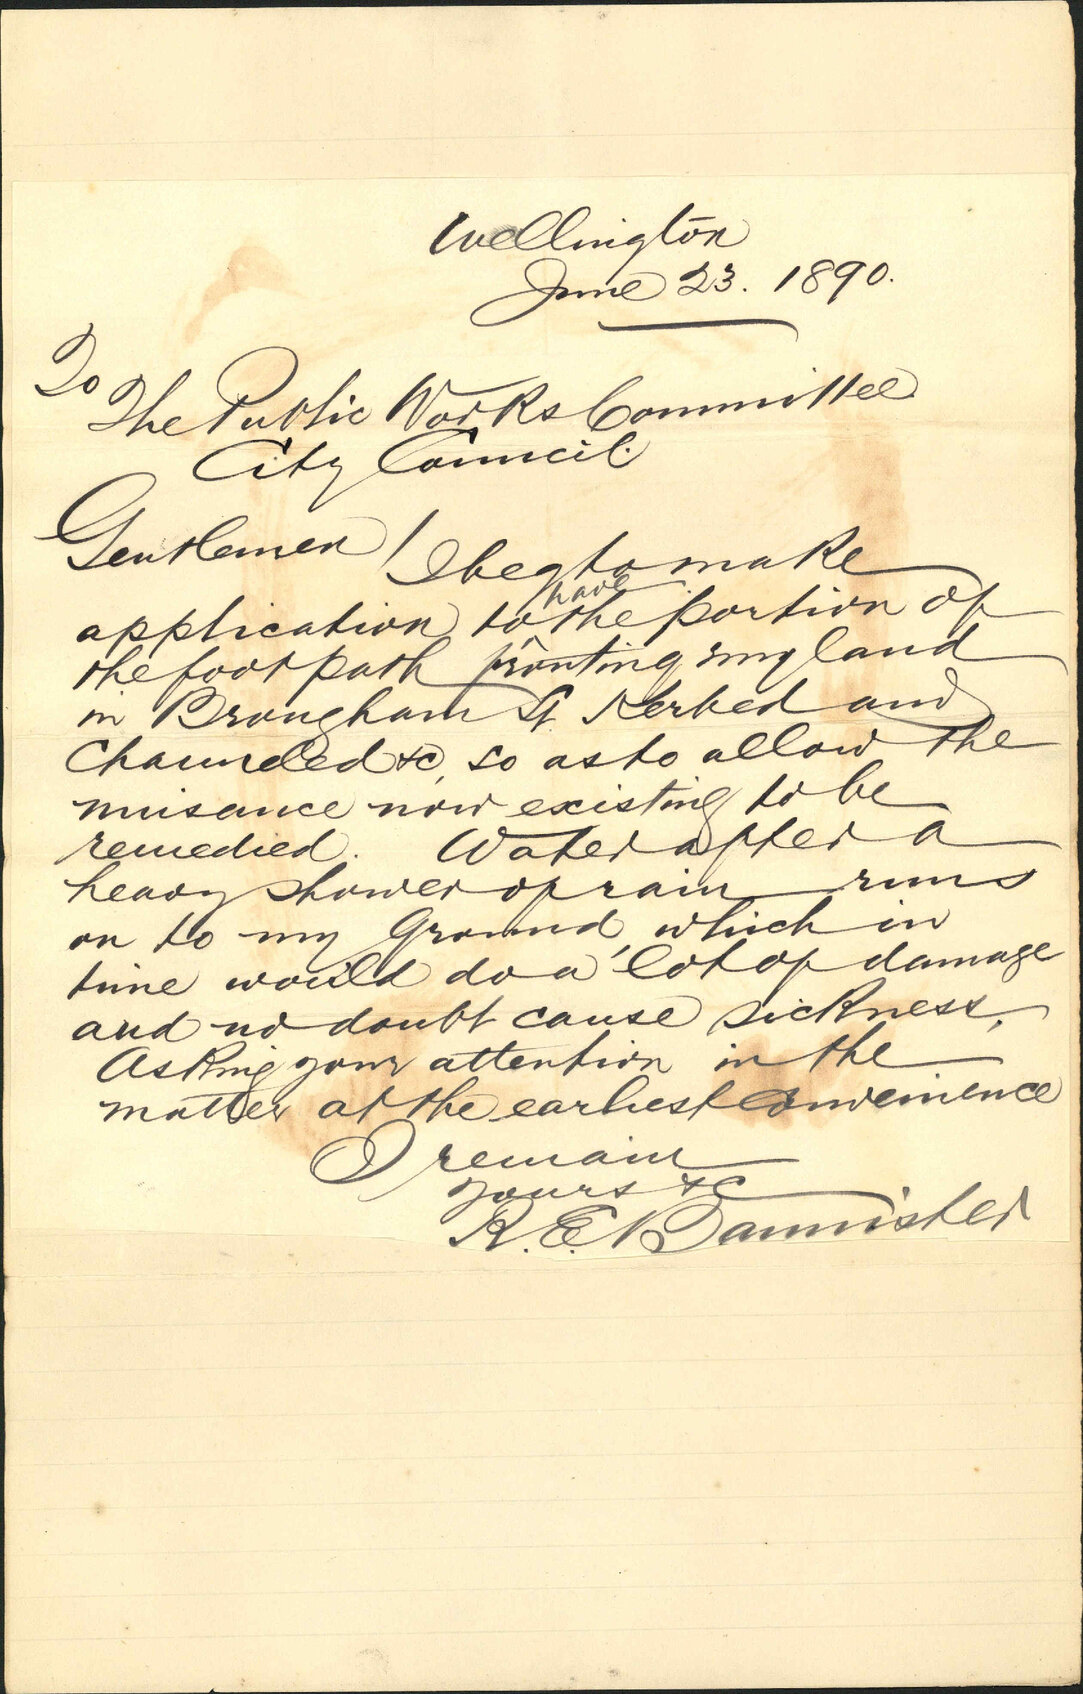 Wellington
June 23. 1890.
To
The Public Works Committee
City Council.
Gentlemen / I beg to make
have
application to the portion of
the footpath fronting my land
in Brougham St Kerbed and
Channeled &c, so as to allow the
nuisance now existing to be
remedied. Water after a
heavy shower of rain runs
on to my Ground, which in
time would do a lot of damage
and no doubt cause sickness.
Asking your attention in the
matter at the earliest convenience
I remain
yours &c
R. E. Bannister